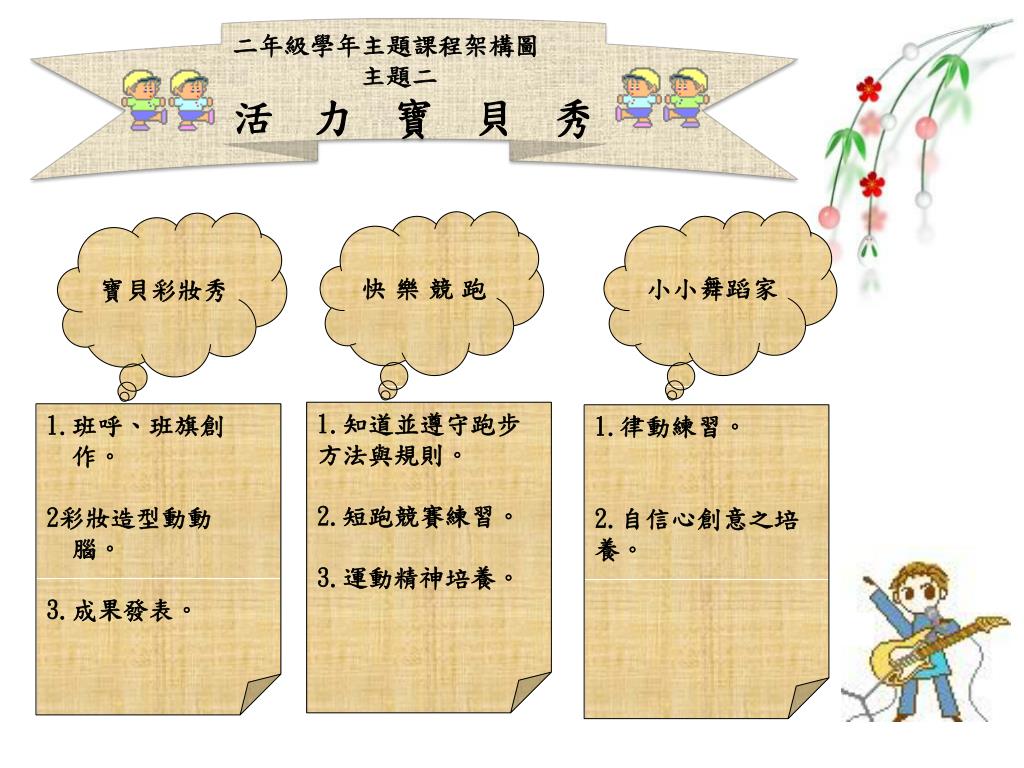 二年級學年主題課程架構圖
主題二
活 力 寶 貝 秀
寶貝彩妝秀
快 樂 競 跑
小小舞蹈家
1.班呼、班旗創
作。
2彩妝造型動動
腦。
3.成果發表。
1.知道並遵守跑步
方法與規則。
2.短跑競賽練習。
3.運動精神培養。
1.律動練習。
2.自信心創意之培
養。